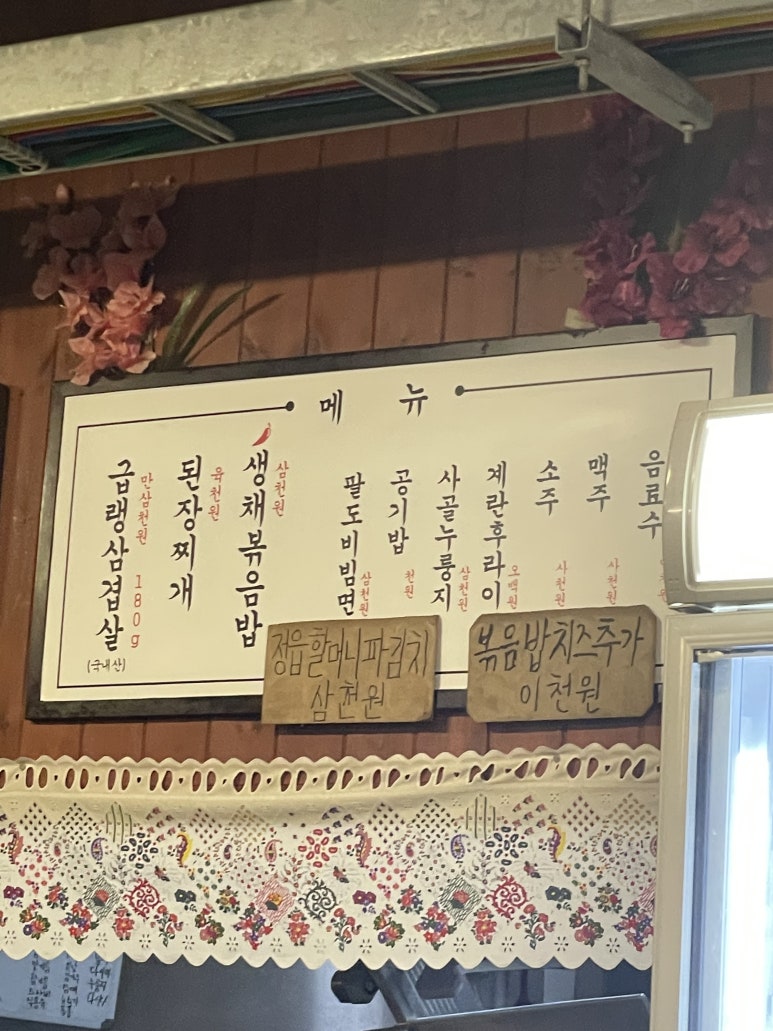 메뉴
급랭삼겹살
만삼천원 180g
(국내산)
된장찌개
육천원
생채볶음밥
삼천원
팔도비빔면
삼천원
공기밥
천원
사골누룽지
삼천원
계란후라이
오백원
소주
사천원
맥주
사천원
음료수
정읍할머니파김치
삼천원
볶음밥치즈추가
이천원